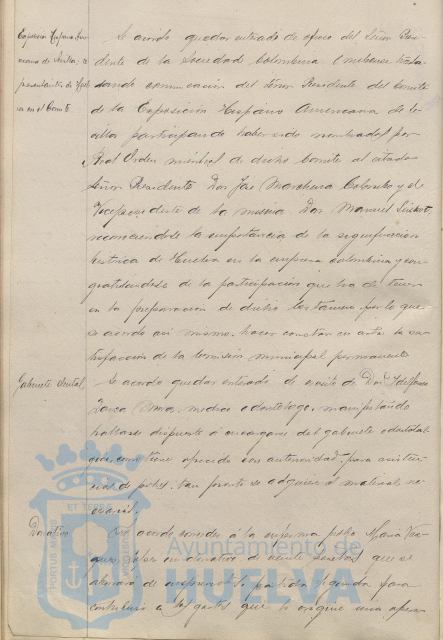 Exposición Hispano Ame-
ricana de Sevilla, re
presentantes de Huel
va en el Comité
Se acordó quedar enterado de oficio del Señor Presi-
dente de la Sociedad Colombina Onubense trasla-
dando comunicación del Señor Presidente del Comité
de la Exposición Hispano Americana de Se
villa participando haber sido nombrados por
Real Orden miembros de dicho Comité al citado
Señor Presidente Don José Marchena Colombo y el
Vicepresidente de la misma Don Manuel Siurot,
reconociéndose la importancia de la significación
histórica de Huelva en la empresa colombina y con-
gratulándose de la participación que ha de tener
en la preparación de dicho Certamen por lo que
se acordó así mismo hacer constar en acta la sa-
tisfacción de la Comisión municipal permanente
Gabinete dental
Se acordó quedar enterado de escrito de Don Ildefonso
médico odontólogo, manifestando
hallarse dispuesto á encargarse del gabinete odontoló-
gico, como tiene ofrecido con anterioridad, para asisten-
cia de pobres, tan pronto se adquiera el material ne-
cesario.
Donativo
Se acordó conceder á la enferma pobre María
un donativo de veinte pesetas que se
partida segunda para
contribuir a los gastos que le origine una opera
PORTUS MARIS
ET TERRAE CUSTODIA
Ayuntamiento de
HUELVA